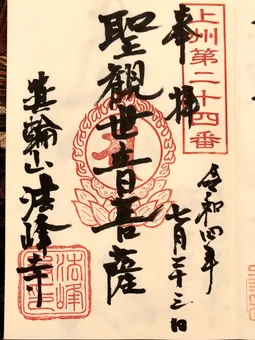 上州第二十四番
奉拝
令和四年
七月二十三日
聖観世音菩薩
箕輪山法峰寺
法峰寺印